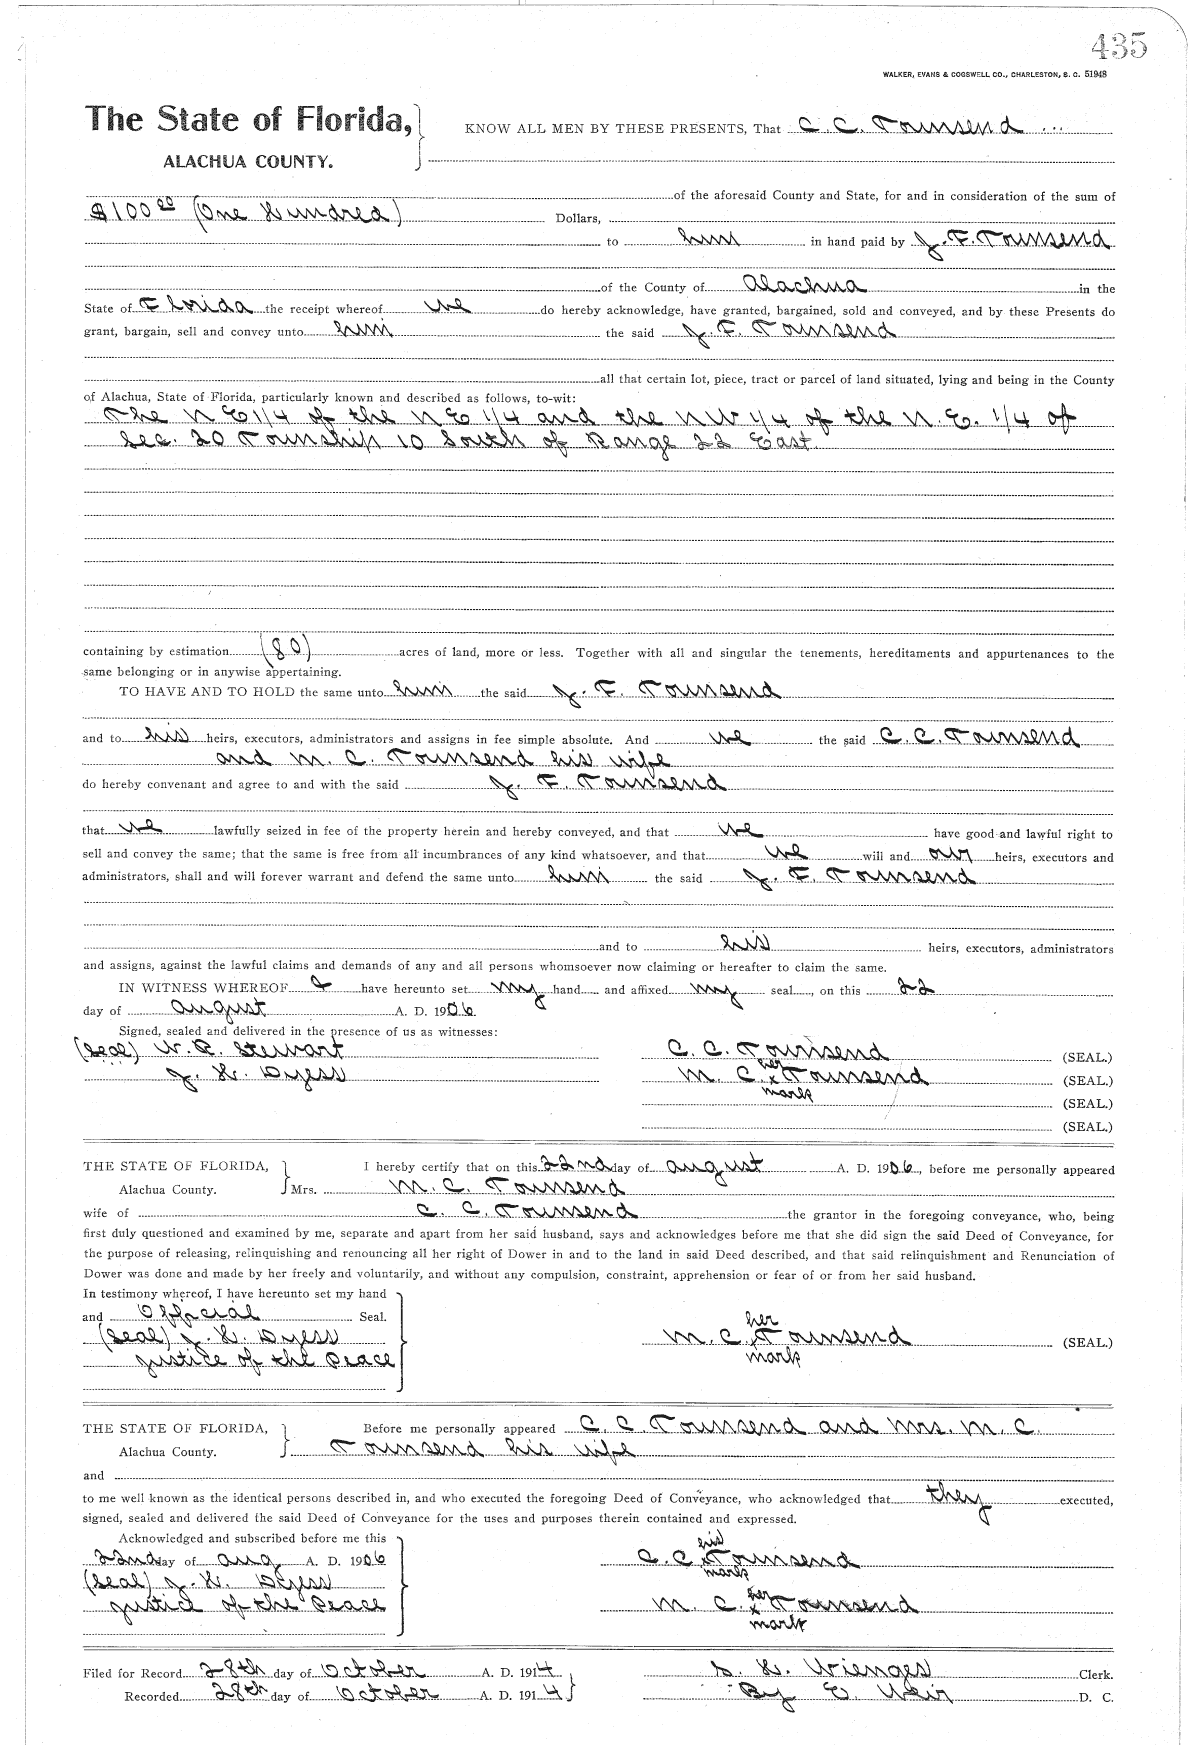 435
WALKER, EVANS & COGSWELL CO., CHARLESTON, S. C. 51948
The State of Florida,
ALACHUA COUNTY.
KNOW ALL MEN BY THESE PRESENTS, That C. C. Townsend
of the aforesaid County and State, for and in consideration of the sum of
$100.00 (One Hundred) Dollars,
to him in hand paid by J. F. Townsend
of the County of Alachua in the
State of Florida the receipt whereof we do hereby acknowledge, have granted, bargained, sold and conveyed, and by these Presents do
grant, bargain, sell and convey unto him the said J. F. Townsend
all that certain lot, piece, tract or parcel of land situated, lying and being in the County
of Alachua, State of Florida, particularly known and described as follows, to-wit:
The N E 1/4 of the N E 1/4 and the NW 1/4 of the N. E. 1/4 of
Sec. 20 Township 10 South of Range 22 East.
containing by estimation (80) acres of land, more or less. Together with all and singular the tenements, hereditaments and appurtenances to the
same belonging or in anywise appertaining.
TO HAVE AND TO HOLD the same unto him the said J. F. Townsend
and to his heirs, executors, administrators and assigns in fee simple absolute. And we the said C. C. Townsend
and M. C. Townsend his wife
do hereby convenant and agree to and with the said J. F. Townsend
that we lawfully seized in fee of the property herein and hereby conveyed, and that we have good and lawful right to
sell and convey the same; that the same is free from all incumbrances of any kind whatsoever, and that we will and our heirs, executors and
administrators, shall and will forever warrant and defend the same unto him the said J. F. Townsend
and to his heirs, executors, administrators
and assigns, against the lawful claims and demands of any and all persons whomsoever now claiming or hereafter to claim the same.
IN WITNESS WHEREOF I have hereunto set my hand and affixed my seal, on this 22
day of August A. D. 1906.
Signed, sealed and delivered in the presence of us as witnesses:
(Seal) W. R. Stewart C. C. Townsend (SEAL.)
J. H. Dyess M. C. her x mark Townsend (SEAL.)
(SEAL.)
(SEAL.)
THE STATE OF FLORIDA, I hereby certify that on this 22nd day of August A. D. 1906, before me personally appeared
Alachua County. Mrs. M. C. Townsend
wife of C. C. Townsend the grantor in the foregoing conveyance, who, being
first duly questioned and examined by me, separate and apart from her said husband, says and acknowledges before me that she did sign the said Deed of Conveyance, for
the purpose of releasing, relinquishing and renouncing all her right of Dower in and to the land in said Deed described, and that said relinquishment and Renunciation of
Dower was done and made by her freely and voluntarily, and without any compulsion, constraint, apprehension or fear of or from her said husband.
In testimony whereof, I have hereunto set my hand
and Official Seal.
(Seal) J. H. Dyess
Justice of the Peace
M. C. her x mark Townsend (SEAL.)
THE STATE OF FLORIDA, Before me personally appeared C. C. Townsend and Mrs. M. C.
Alachua County. Townsend his wife
and
to me well known as the identical persons described in, and who executed the foregoing Deed of Conveyance, who acknowledged that they executed,
signed, sealed and delivered the said Deed of Conveyance for the uses and purposes therein contained and expressed.
Acknowledged and subscribed before me this
22nd day of Aug A. D. 1906
C. C. his x mark Townsend
(Seal) J. H. Dyess
Justice of the Peace
M. C. her x mark Townsend
Filed for Record 28th day of October A. D. 1914 S. H. Wienges Clerk.
Recorded 28th day of October A. D. 1914 By E. Weir D. C.